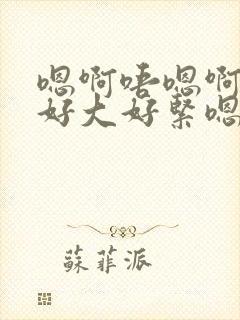 嗯啊唔嗯啊
好大好緊嗯
蘇菲派